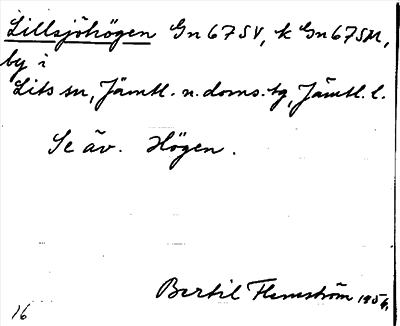 Lillsjöhögen Gn 67 SV, k Gn 67 SM,
by i
Lits sn, Jämtl. n. doms. tg, Jämtl. l.
Se äv. Högen.
Bertil Flemström 1954.
16